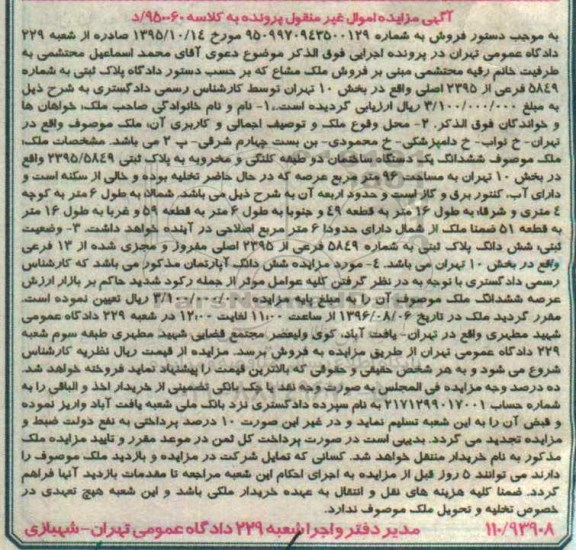 آگهی مزایده اموال غیر منقول پرونده به کلاسه ۹۵۰۰۶۰/د
به موجب دستور فروش به شماره ۹۵۰۹۹۷۰۹۴۳۵۰۰۱۲۹ مورخ ۱۳۹۵/۱۰/۱۴ صادره از شعبه ۲۲۹
دادگاه عمومی تهران در پرونده اجرایی فوق الذکر موضوع دعوی آقای محمد اسماعیل محتشمی به
طرفیت خانم رقیه محتشمی مبنی بر فروش ملک مشاع که بر حسب دستور دادگاه پلاک ثبتی به شماره
۵۸۴۹ فرعی از ۲۳۹۵ اصلی واقع در بخش ۱۰ تهران توسط کارشناس رسمی دادگستری به شرح ذیل
به مبلغ ۳/۱۰۰/۰۰۰/۰۰۰ ریال ارزیابی گردیده است. ۱- نام و نام خانوادگی صاحب ملک، خواهان ها
و خواندگان فوق الذکر. ۲- محل وقوع ملک و توصیف اجمالی و کاربری آن، ملک موصوف واقع در
تهران- خ نواب- خ دامپزشکی- خ محمودی- بن بست چهارم شرقی- پ ۲ می باشد. مشخصات ملک:
ملک موصوف ششدانگ یک دستگاه ساختمان دو طبقه کلنگی و مخروبه به پلاک ثبتی ۲۳۹۵/۵۸۴۹ واقع
در بخش ۱۰ تهران به مساحت ۹۶ متر مربع عرصه که در حال حاضر تخلیه بوده و خالی از سکنه است و
دارای آب، کنتور برق و گاز است و حدود اربعه آن به شرح ذیل می باشد. شمالا به طول ۶ متر به کوچه
۴ متری و شرقا به طول ۱۶ متر به قطعه ۴۹ و جنوبا به طول ۶ متر به قطعه ۵۹ و غربا به طول ۱۶ متر
به قطعه ۵۱ ضمنا ملک از شمال دارای حدودا ۶ متر مربع اصلاحی در آینده خواهد داشت. ۳- وضعیت
ثبتی: شش دانگ پلاک ثبتی به شماره ۵۸۴۹ فرعی از ۲۳۹۵ اصلی مفروز و مجزی شده از ۱۳ فرعی
واقع در بخش ۱۰ تهران می باشد. ۴- مورد مزایده شش دانگ آپارتمان مذکور می باشد که کارشناس
رسمی دادگستری با توجه به در نظر گرفتن کلیه عوامل موثر از جمله رکود شدید حاکم بر بازار ارزش
عرصه ششدانگ ملک موصوف آن را به مبلغ پایه مزایده ۳/۱۰۰/۰۰۰/۰۰۰ ریال تعیین نموده است.
مقرر گردید ملک در تاریخ ۱۳۹۶/۰۸/۰۶ از ساعت ۱۱:۰۰ لغایت ۱۲:۰۰ در شعبه ۲۲۹ دادگاه عمومی
شهید مطهری واقع در تهران- یافت آباد، کوی ولیعصر مجتمع قضایی شهید مطهری طبقه سوم شعبه
۲۲۹ دادگاه عمومی تهران از طریق مزایده به فروش برسد. مزایده از قیمت ریال نظریه کارشناس
شروع می شود و به هر شخص حقیقی و حقوقی که بالاترین قیمت را پیشنهاد نماید فروخته خواهد شد.
ده درصد وجه مزایده فی المجلس به صورت وجه نقد یا چک بانکی تضمینی از خریدار اخذ و الباقی را به
شماره حساب ۲۱۷۱۲۹۹۰۱۷۰۰۱ به نام سپرده دادگستری نزد بانک ملی شعبه یافت آباد واریز نموده
و قبض آن را به این شعبه تسلیم نماید و در غیر این صورت ۱۰ درصد پرداختی به نفع دولت ضبط و
مزایده تجدید می گردد. بدیهی است در صورت پرداخت کل ثمن در موعد مقرر و تایید مزایده ملک
مذکور به نام خریدار منتقل خواهد شد. کسانی که تمایل شرکت در مزایده و بازدید ملک موصوف را
دارند می توانند ۵ روز قبل از مزایده به اجرای احکام این شعبه مراجعه تا مقدمات بازدید آنها فراهم
گردد. ضمنا کلیه هزینه های نقل و انتقال به عهده خریدار ملکی باشد و این شعبه هیچ تعهدی در
خصوص تخلیه و تحویل ملک موصوف ندارد.
۱۱۰/۹۳۹۰۸ مدیر دفتر و اجرا شعبه ۲۲۹ دادگاه عمومی تهران- شهبازی